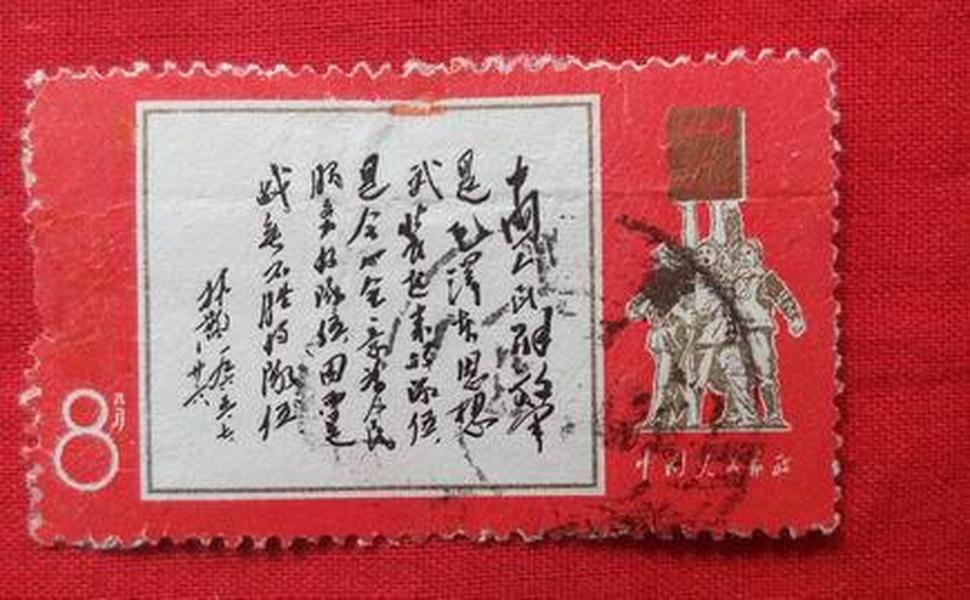 中国人民解放军
是毛泽东思想
武装起来的队伍
是全心全意为人民
服务的队伍，因而是
战无不胜的队伍
林彪 一九六五、七、
廿六
8 分
中国人民邮政